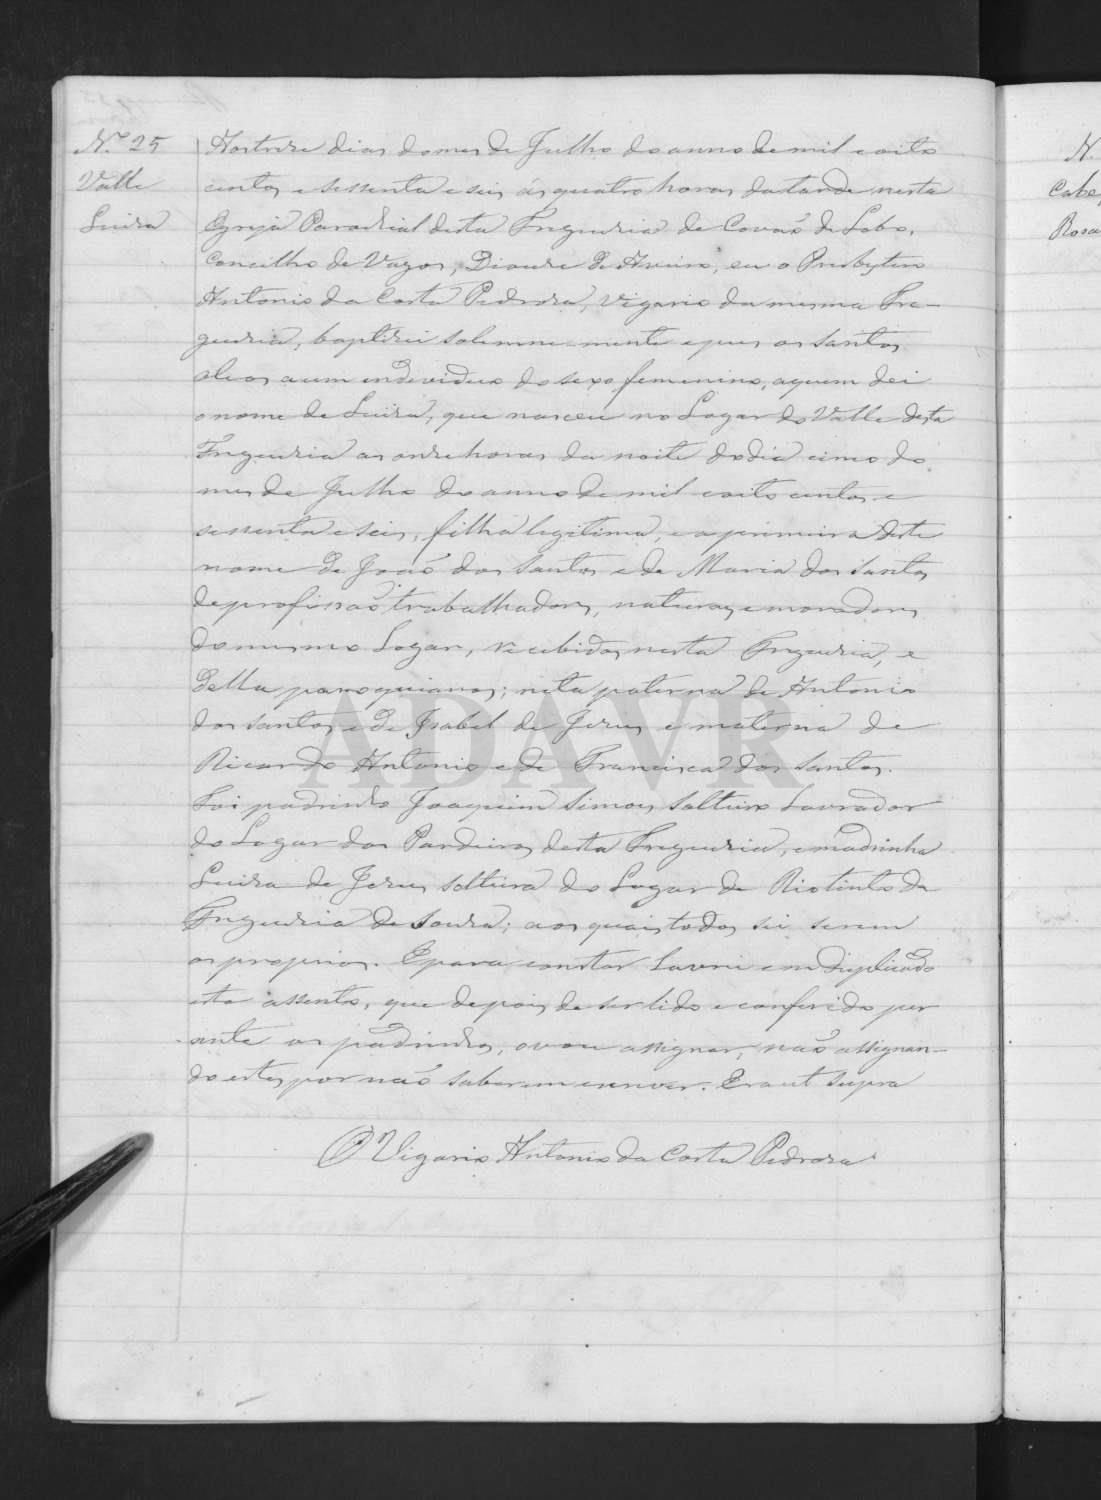 N.º 25
Valle
Luiza
Aos treze dias do mes de Julho do anno de mil e oito
centos e sessenta e seis, ás quatro horas da tarde nesta
Egreja Parochial desta Freguezia de Covaõ de Lobo,
Concelho de Vagos, Diocese de Aveiro, eu o Presbytero
Antonio da Costa Pedroza, Vigario da mesma Fre-
guezia, baptizei solemne-mente e puz os santos
oleos a um endeviduo do sexo femenino, a quem dei
o nome de Luiza, que nasceu no Logar do Valle desta
Freguezia as onze horas da noite do dia cinco do
mes de Julho do anno de mil e oito centos e
sessenta e seis, filha legitima, e a primeira deste
nome de Joaõ dos Santos e de Maria dos Santos
de profissaõ trabalhadores, naturaes e moradores
do mesmo Logar, recebidos nesta Freguezia, e
della paroquianos; neta paterna de Antonio
dos Santos e de Isabel de Jezus e materna de
Ricardo Antonio e de Francisca dos Santos.
Foi padrinho Joaquim Simoes solteiro Lavrador
do Logar dos Pardeiros desta Freguezia, e madrinha
Luiza de Jezus solteira do Logar de Rio tinto da
Freguezia de Souza; aos quais todos sei serem
os proprios. E para constar lavrei em duplicado
este assento, que depois de ser lido e conferido per
ante os padrinhos, o vou assignar, naõ assignan-
do estes por naõ saberem escrever. Era ut supra
O Vigario Antonio da Costa Pedroza
N.
Cabe
Rosa
ADAVR